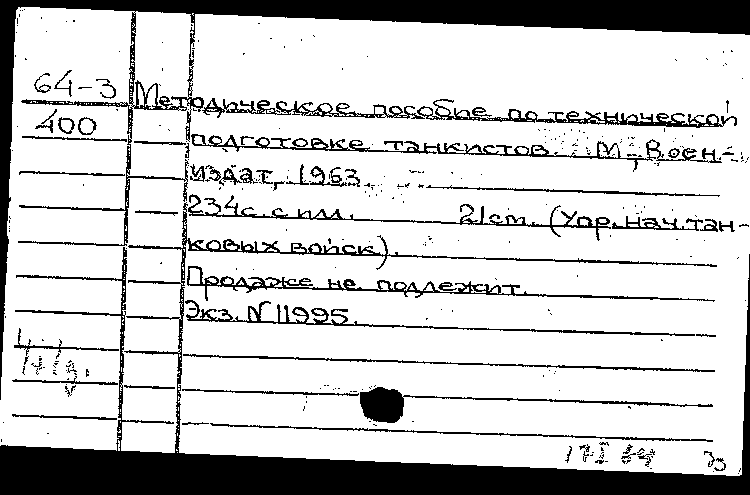 64-3 Методическое пособие по технической
400 подготовке танкистов. М., Воен-
издат, 1963.
234с. с илл. 21см. (Упр. нач. тан-
ковых войск).
Продаже не подлежит.
Экз. N 11995.
17 I 64